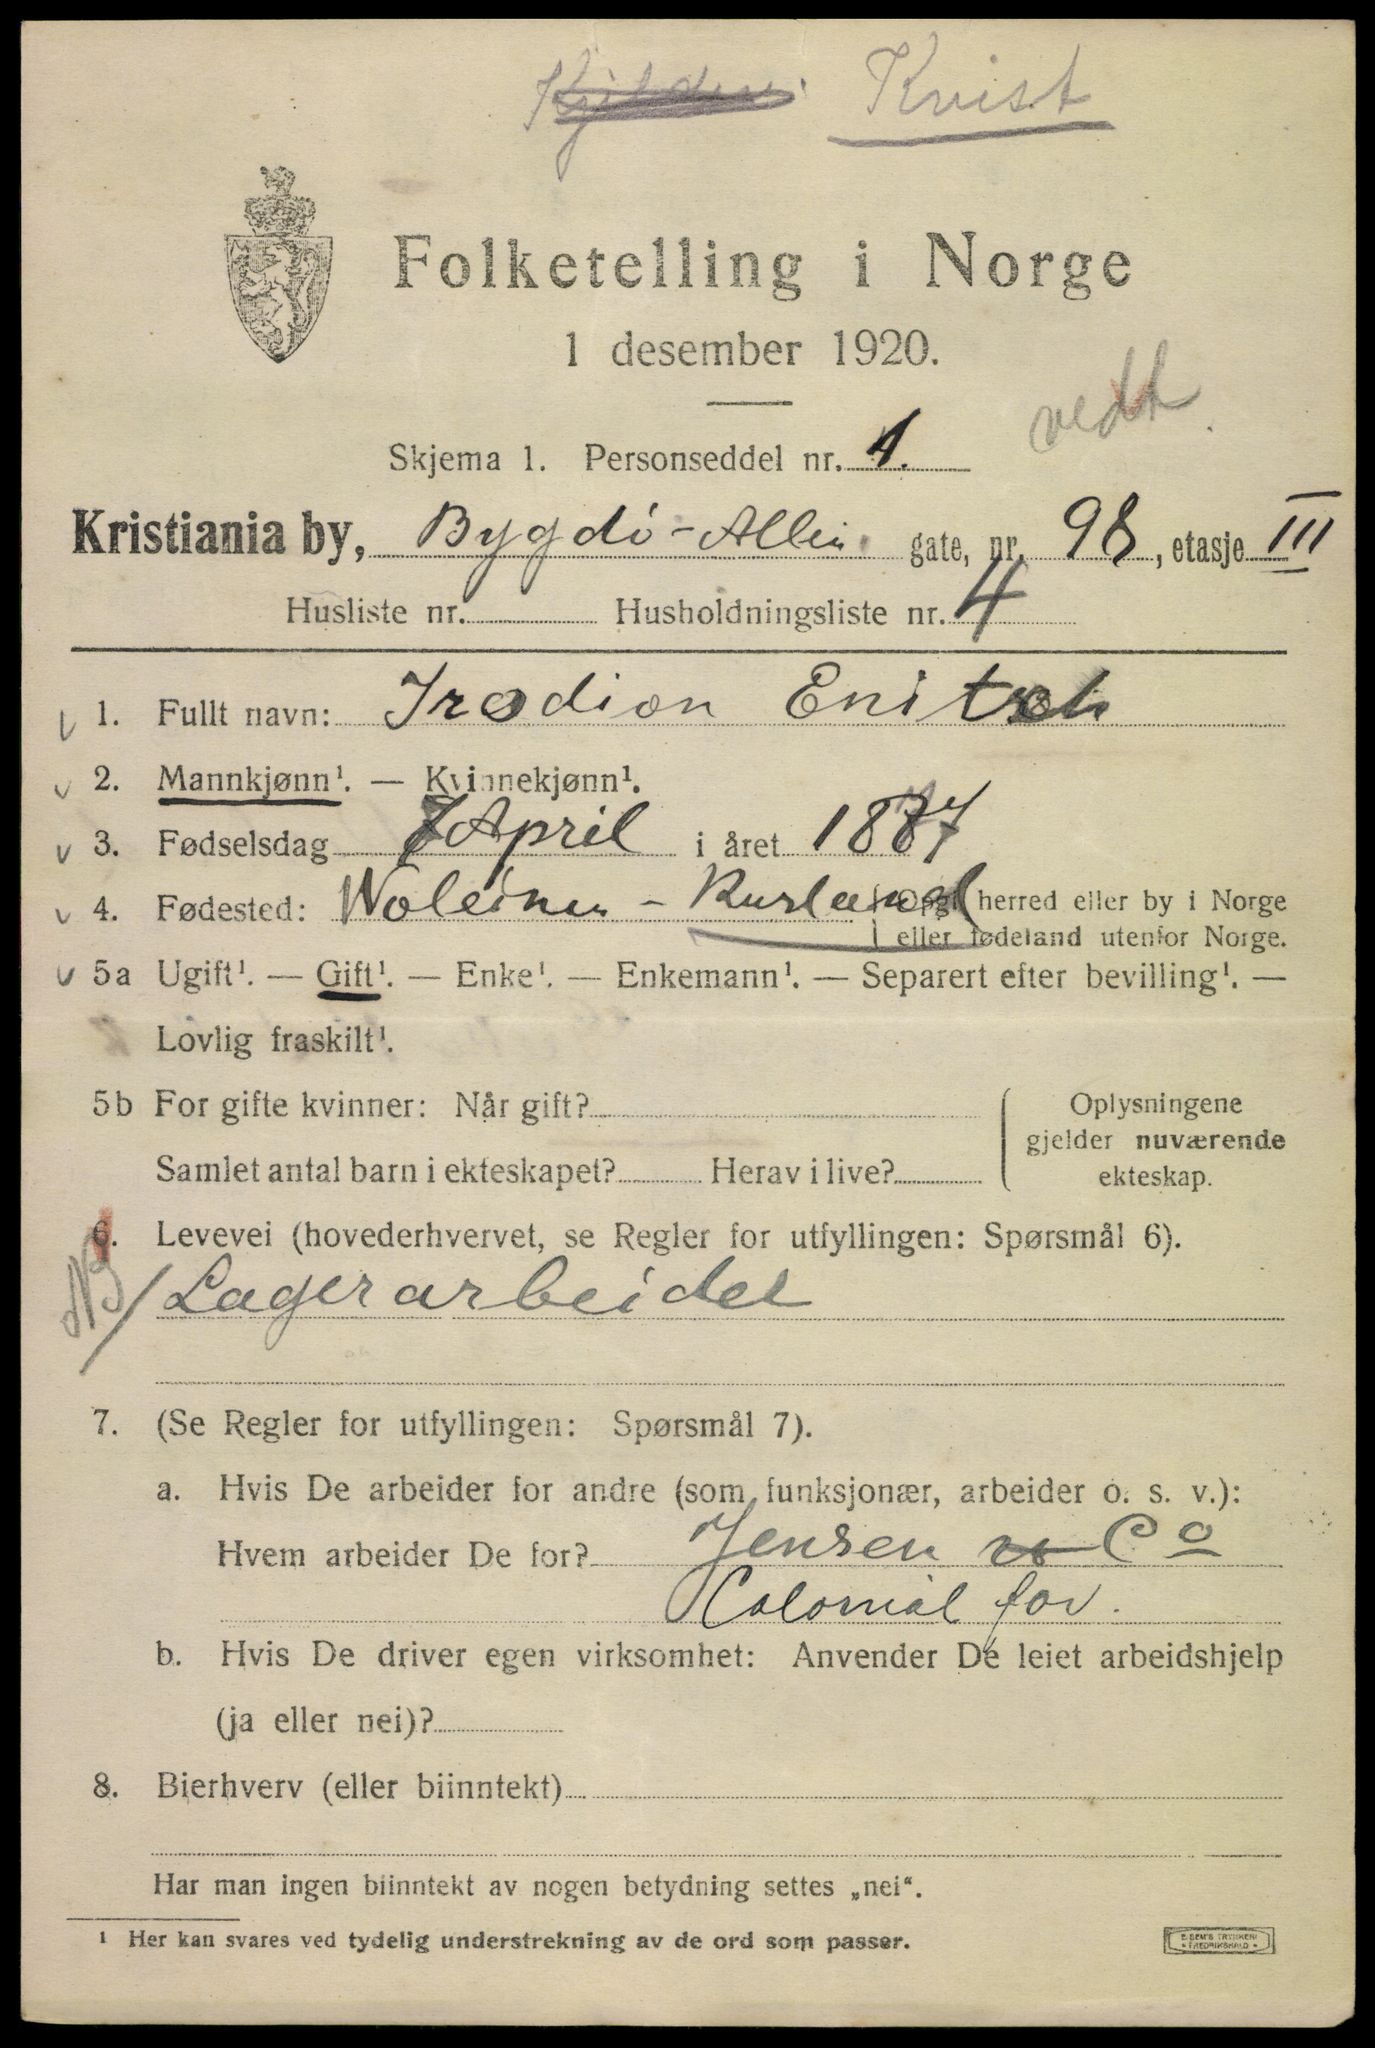 Kvist
Folketelling i Norge
1 desember 1920.
vedt.
Skjema 1. Personseddel nr. 1.
Kristiania by, Bygdö-Allee gate, nr. 98, etasje III
Husliste nr. Husholdningsliste nr. 4
1. Fullt navn: Irodion Enitsch
2. Mannkjønn¹. — Kvinnekjønn¹.
3. Fødselsdag 7 April i året 1887
4. Fødested: Woleinen - Kurland (Opgi herred eller by i Norge
eller fødeland utenfor Norge.
5a Ugift¹. — Gift¹. — Enke¹. — Enkemann¹. — Separert efter bevilling¹. —
Lovlig fraskilt¹.
5b For gifte kvinner: Når gift? Oplysningene
gjelder nuværende
Samlet antal barn i ekteskapet? Herav i live? ekteskap.
6. Levevei (hovederhvervet, se Regler for utfyllingen: Spørsmål 6).
NB/ Lagerarbeider
7. (Se Regler for utfyllingen: Spørsmål 7).
a. Hvis De arbeider for andre (som funksjonær, arbeider o. s. v.):
Hvem arbeider De for? Jensen & Co
Colonial for.
b. Hvis De driver egen virksomhet: Anvender De leiet arbeidshjelp
(ja eller nei)?
8. Bierhverv (eller biinntekt)
Har man ingen biinntekt av nogen betydning settes „nei“.
¹ Her kan svares ved tydelig understrekning av de ord som passer.
E. SEM'S TRYKKERI
FREDRIKSHALD